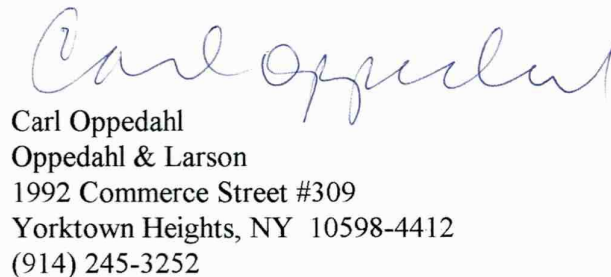 Carl Oppedahl
Carl Oppedahl
Oppedahl & Larson
1992 Commerce Street #309
Yorktown Heights, NY 10598-4412
(914) 245-3252